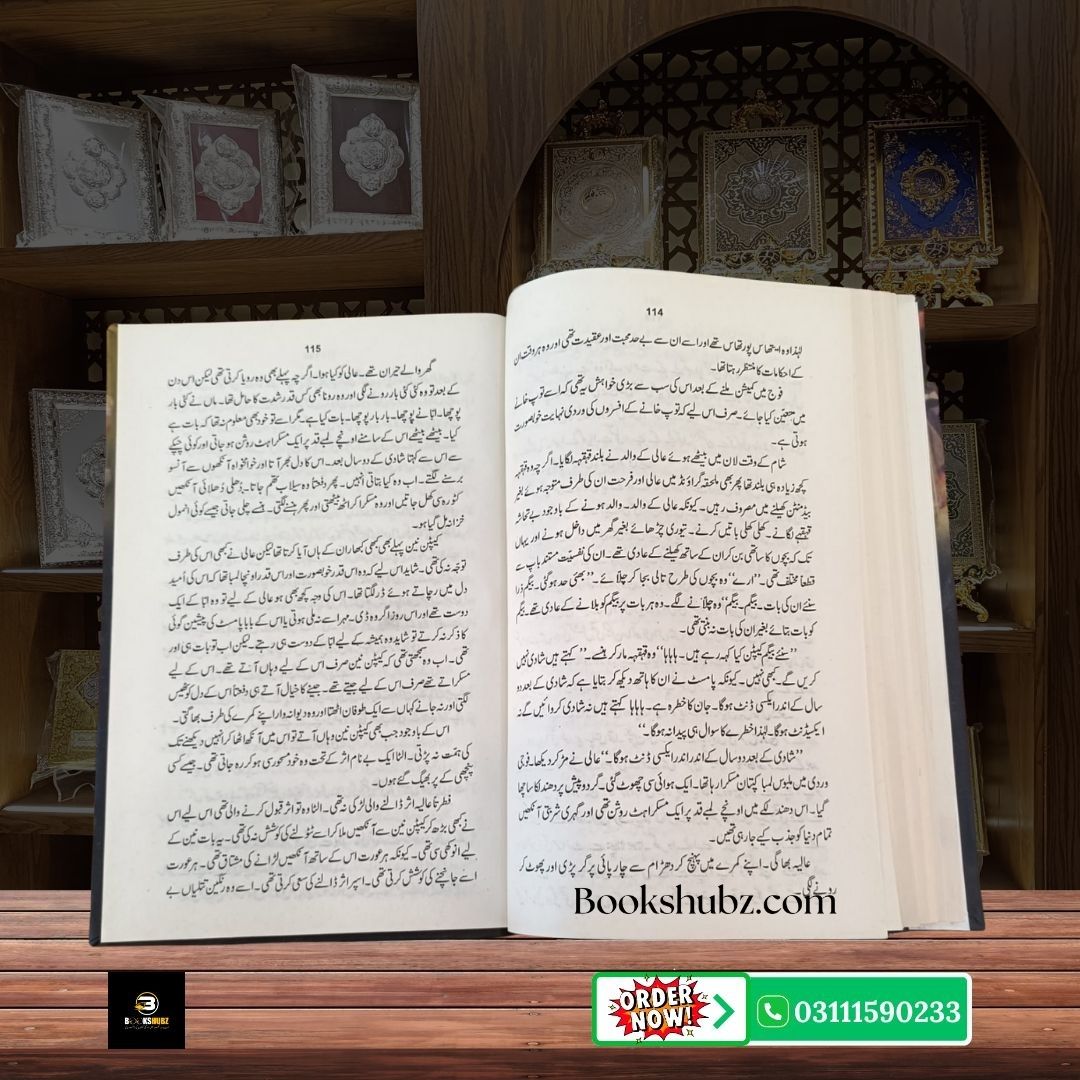 114
لہٰذا وہ ایتھاس پورتھاس تھے اور اسے ان سے بے حد محبت اور عقیدت تھی اور وہ ہر وقت ان
کے احکامات کا منتظر رہتا تھا۔
فوج میں کمیشن ملنے کے بعد اس کی سب سے بڑی خواہش یہ تھی کہ اسے توپ خانے
میں متعین کیا جائے۔ صرف اس لیے کہ توپ خانے کے افسروں کی وردی نہایت خوبصورت
ہوتی ہے۔
شام کے وقت لان میں بیٹھے ہوئے عالی کے والد نے بلند قہقہہ لگایا۔ اگرچہ وہ قہقہہ
کچھ زیادہ ہی بلند تھا پھر بھی ملحقہ گراؤنڈ میں عالی اور فرحت ان کی طرف متوجہ ہوئے بغیر
بیڈمنٹن کھیلنے میں مصروف رہیں۔ کیونکہ عالی کے والد۔ والد ہونے کے باوجود بے تحاشہ
قہقہے لگانے۔ کھلی کھلی باتیں کرنے۔ تیوری چڑھائے بغیر گھر میں داخل ہونے اور یہاں
تک کہ بچوں کا ساتھی بن کر ان کے ساتھ کھیلنے کے عادی تھے۔ ان کی نفسیت متقد باپ سے
قطعاً مختلف تھی۔ ”ارے“ وہ بچوں کی طرح تالی بجا کر چلائے۔ ”بھئی حد ہوگئی۔ بیگم ذرا
سنئے ان کی بات۔ بیگم۔ بیگم“ وہ چلّانے لگے۔ وہ ہر بات پر بیگم کو بلانے کے عادی تھے۔ بیگم
کو بات بتائے بغیر ان کی بات نہ بنتی تھی۔
”سنئے بیگم کیپٹن کیا کہہ رہے ہیں۔ ہاہاہا“ وہ قہقہہ مار کر ہنسے۔ ”کہتے ہیں شادی نہیں
کریں گے۔ کبھی نہیں۔ کیونکہ پامسٹ نے ان کا ہاتھ دیکھ کر بتایا ہے کہ شادی کے بعد دو
سال کے اندر ایکسی ڈنٹ ہوگا۔ جان کا خطرہ ہے۔ ہاہاہا کہتے ہیں نہ شادی کروائیں گے نہ
ایکیڈنٹ ہوگا۔ لہٰذا خطرے کا سوال ہی پیدا نہ ہوگا۔“
”شادی کے بعد دو سال کے اندر اندر ایکسی ڈنٹ ہوگا۔“ عالی نے مڑ کر دیکھا۔ فوجی
وردی میں ملبوس لمبا کپتان مسکرا رہا تھا۔ ایک ہوائی سی چھوٹ گئی۔ گردو پیش پر دھندلکا سا چھا
گیا۔ اس دھندلکے میں اونچے لمبے قد پر ایک مسکراہٹ روشن تھی اور گہری شربتی آنکھیں
تمام دنیا کو جذب کیے جا رہی تھیں۔
عالیہ بھاگی۔ اپنے کمرے میں پہنچ کر دھڑام سے چارپائی پر گر پڑی اور پھوٹ کر
رونے لگی۔
115
گھر والے حیران تھے۔ عالی کو کیا ہوا۔ اگرچہ پہلے بھی وہ رویا کرتی تھی لیکن اس دن
کے بعد تو وہ کئی کئی بار رونے لگی اور وہ رونا بھی کس قدر شدت کا حامل تھا۔ ماں نے کئی بار
پوچھا۔ ابّا نے پوچھا۔ بار بار پوچھا۔ بات کیا ہے۔ مگر اسے تو خود بھی معلوم نہ تھا کہ بات ہے
کیا۔ بیٹھے بیٹھے اس کے سامنے اونچے لمبے قد پر ایک مسکراہٹ روشن ہو جاتی اور کوئی چپکے
سے اس سے کہتا شادی کے دو سال بعد۔ اس کا دل بھر آتا اور خوانخواہ آنکھوں سے آنسو
برسنے لگتے۔ اب وہ کیا بتاتی انہیں۔ پھر دفعتاً وہ سیلاب تھم جاتا۔ دُھلی دُھلائی آنکھیں
کٹورہ سی کھل جاتیں اور وہ مسکرا کر اٹھ بیٹھتی اور پھر ہنسنے لگتی۔ ہنسے چلی جاتی جیسے کوئی انمول
خزانہ مل گیا ہو۔
کیپٹن نین پہلے بھی کبھی کبھار ان کے ہاں آیا کرتا تھا لیکن عالی نے کبھی اس کی طرف
توجّہ نہ کی تھی۔ شاید اس لیے کہ وہ اس قدر خوبصورت اور اس قدر اونچا لمبا تھا کہ اس کی اُمید
دل میں رچاتے ہوئے ڈر لگتا تھا۔ اس کی وجہ کچھ بھی ہو عالی کے لیے تو وہ ابّا کے ایک
دوست تھے اور اس روز اگر وہ ڈی۔ مہرا سے نہ ملی ہوتی یا اس کے بابا پامسٹ کی پیشین گوئی
کا ذکر نہ کرتے تو شاید وہ ہمیشہ کے لیے ابّا کے دوست ہی رہتے۔ لیکن اب تو بات ہی اور
تھی۔ اب وہ سمجھتی تھی کہ کیپٹن نین صرف اس کے لیے وہاں آتے تھے۔ اس کے لیے
مسکراتے تھے صرف اس کے لیے جیتے تھے۔ جینے کا خیال آتے ہی دفعتاً اس کے دل کو ٹھیس
لگتی اور نہ جانے کہاں سے ایک طوفان اٹھتا اور وہ دیوانہ وار اپنے کمرے کی طرف بھاگتی۔
اس کے باوجود جب بھی کیپٹن نین وہاں آتے تو اس میں آنکھ اٹھا کر انہیں دیکھنے تک
کی ہمت نہ پڑتی۔ الٹا ایک بے نام اثر کے تحت وہ خود مسحور سی ہو کر رہ جاتی تھی۔ جیسے کسی
پنچھی کے پر بھیگ گئے ہوں۔
فطرتاً عالیہ اثر ڈالنے والی لڑکی نہ تھی۔ الٹا وہ تو اثر قبول کرنے والی تھی اس لیے اس
نے کبھی بڑھ کر کیپٹن نین سے آنکھیں ملا کر اسے ٹٹولنے کی کوشش نہ کی تھی۔ یہ بات نین کے
لیے انوکھی سی تھی۔ کیونکہ ہر عورت اس کے ساتھ آنکھیں لڑانے کی مشتاق تھی۔ ہر عورت
اسے جانچنے کی کوشش کرتی تھی۔ اسپر اثر ڈالنے کی سعی کرتی تھی۔ اسے وہ رنگین تتلیاں بے
Bookshubz.com
BOOKSHUBZ
ORDER
NOW!
03111590233